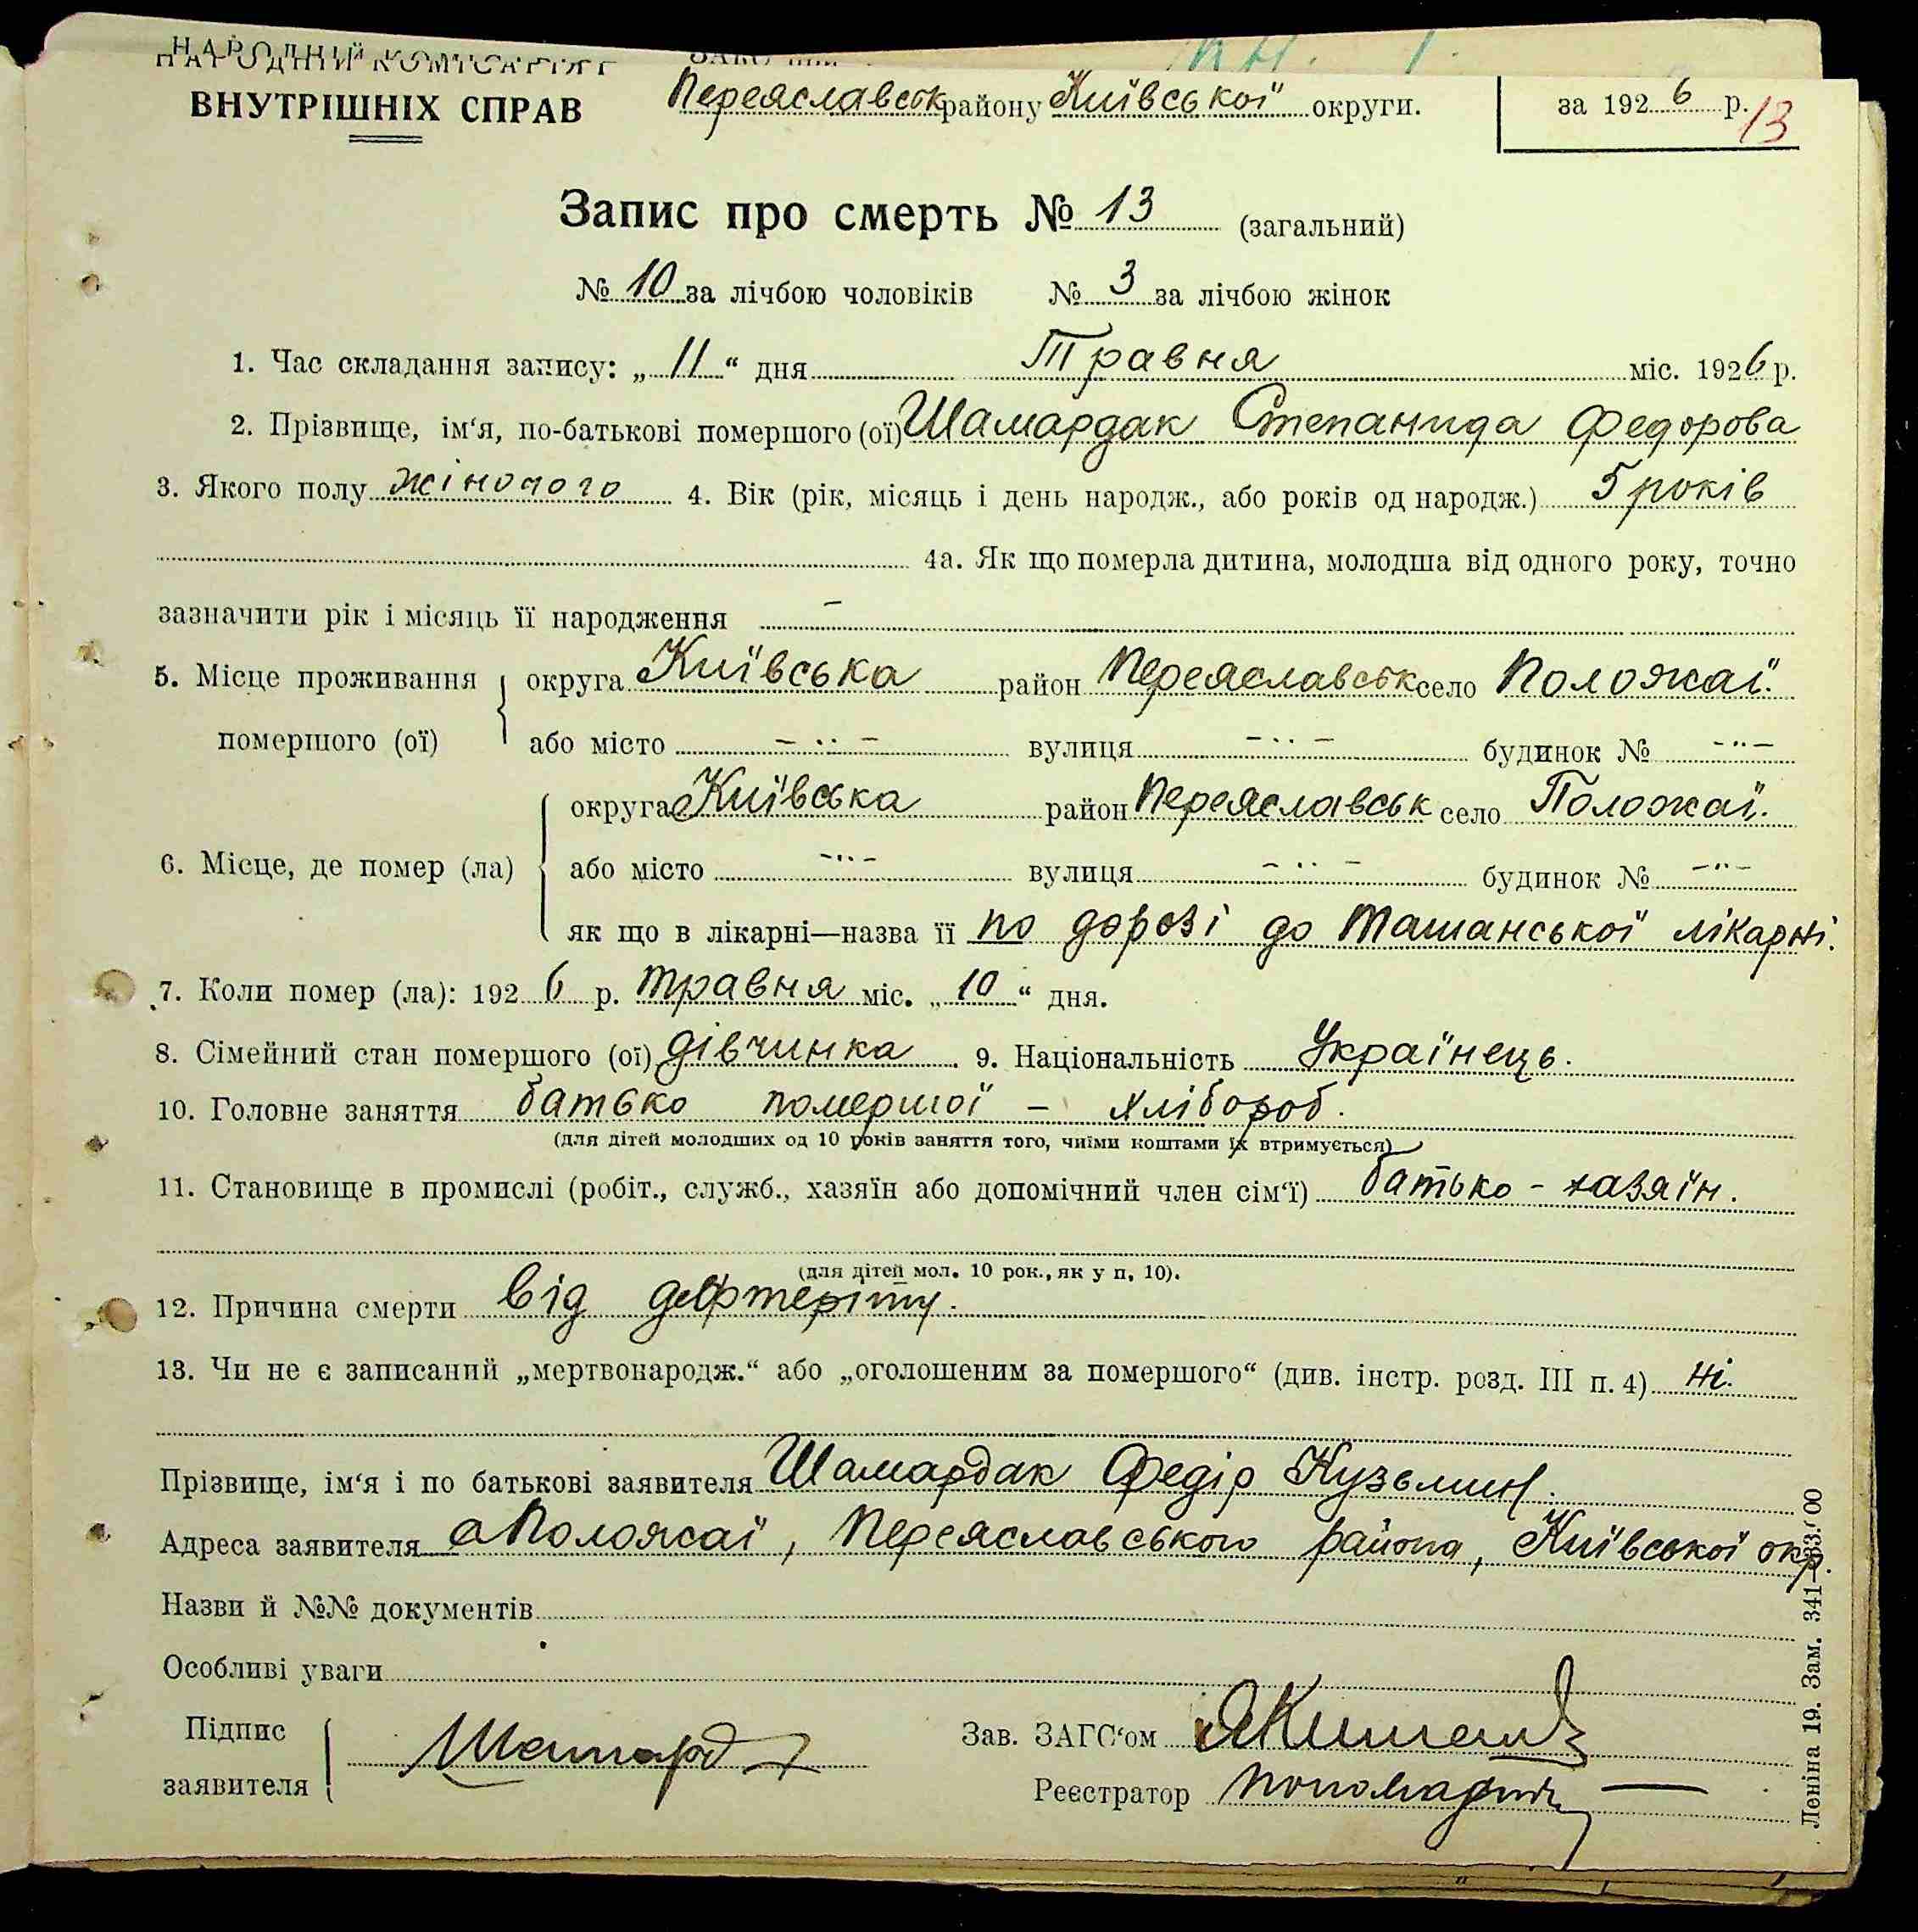 НАРОДНІЙ КОМІСАРІЯТ
ВНУТРІШНІХ СПРАВ
Переяславськ району Київської округи.
за 1926 р.
13
Запис про смерть № 13 (загальний)
№ 10 за лічбою чоловіків № 3 за лічбою жінок
1. Час складання запису: „11“ дня Травня міс. 1926 р.
2. Прізвище, ім‘я, по-батькові помершого (ої) Шамардак Степанида Федорова
3. Якого полу жіночого 4. Вік (рік, місяць і день народж., або років од народж.) 5 років
4а. Як що померла дитина, молодша від одного року, точно
зазначити рік і місяць її народження –
5. Місце проживання округа Київська район Переяславськ село Положаї.
помершого (ої) або місто – ·· – вулиця – ·· – будинок № – ·· –
округа Київська район Переяславськ село Положаї.
6. Місце, де помер (ла) або місто – ·· – вулиця – ·· – будинок № – ·· –
як що в лікарні—назва її по дорозі до Ташанської лікарні.
7. Коли помер (ла): 1926 р. травня міс. „10“ дня.
8. Сімейний стан помершого (ої) дівчинка. 9. Національність Українець.
10. Головне заняття батько помершої – хлібороб.
(для дітей молодших од 10 років заняття того, чиїми коштами їх втримується)
11. Становище в промислі (робіт., служб., хазяїн або допомічний член сім‘ї) батько – хазяїн.
(для дітей мол. 10 рок., як у п. 10).
12. Причина смерти від дефтеріту.
13. Чи не є записаний „мертвонародж.“ або „оголошеним за помершого“ (див. інстр. розд. III п. 4) ні.
Прізвище, ім‘я і по батькові заявителя Шамардак Федір Кузьмич.
Адреса заявителя с Положаї, Переяславського района, Київської окр.
Назви й №№ документів
Особливі уваги
Підпис
заявителя Шамард
Зав. ЗАГС‘ом
Реєстратор
Леніна 19. Зам. 341